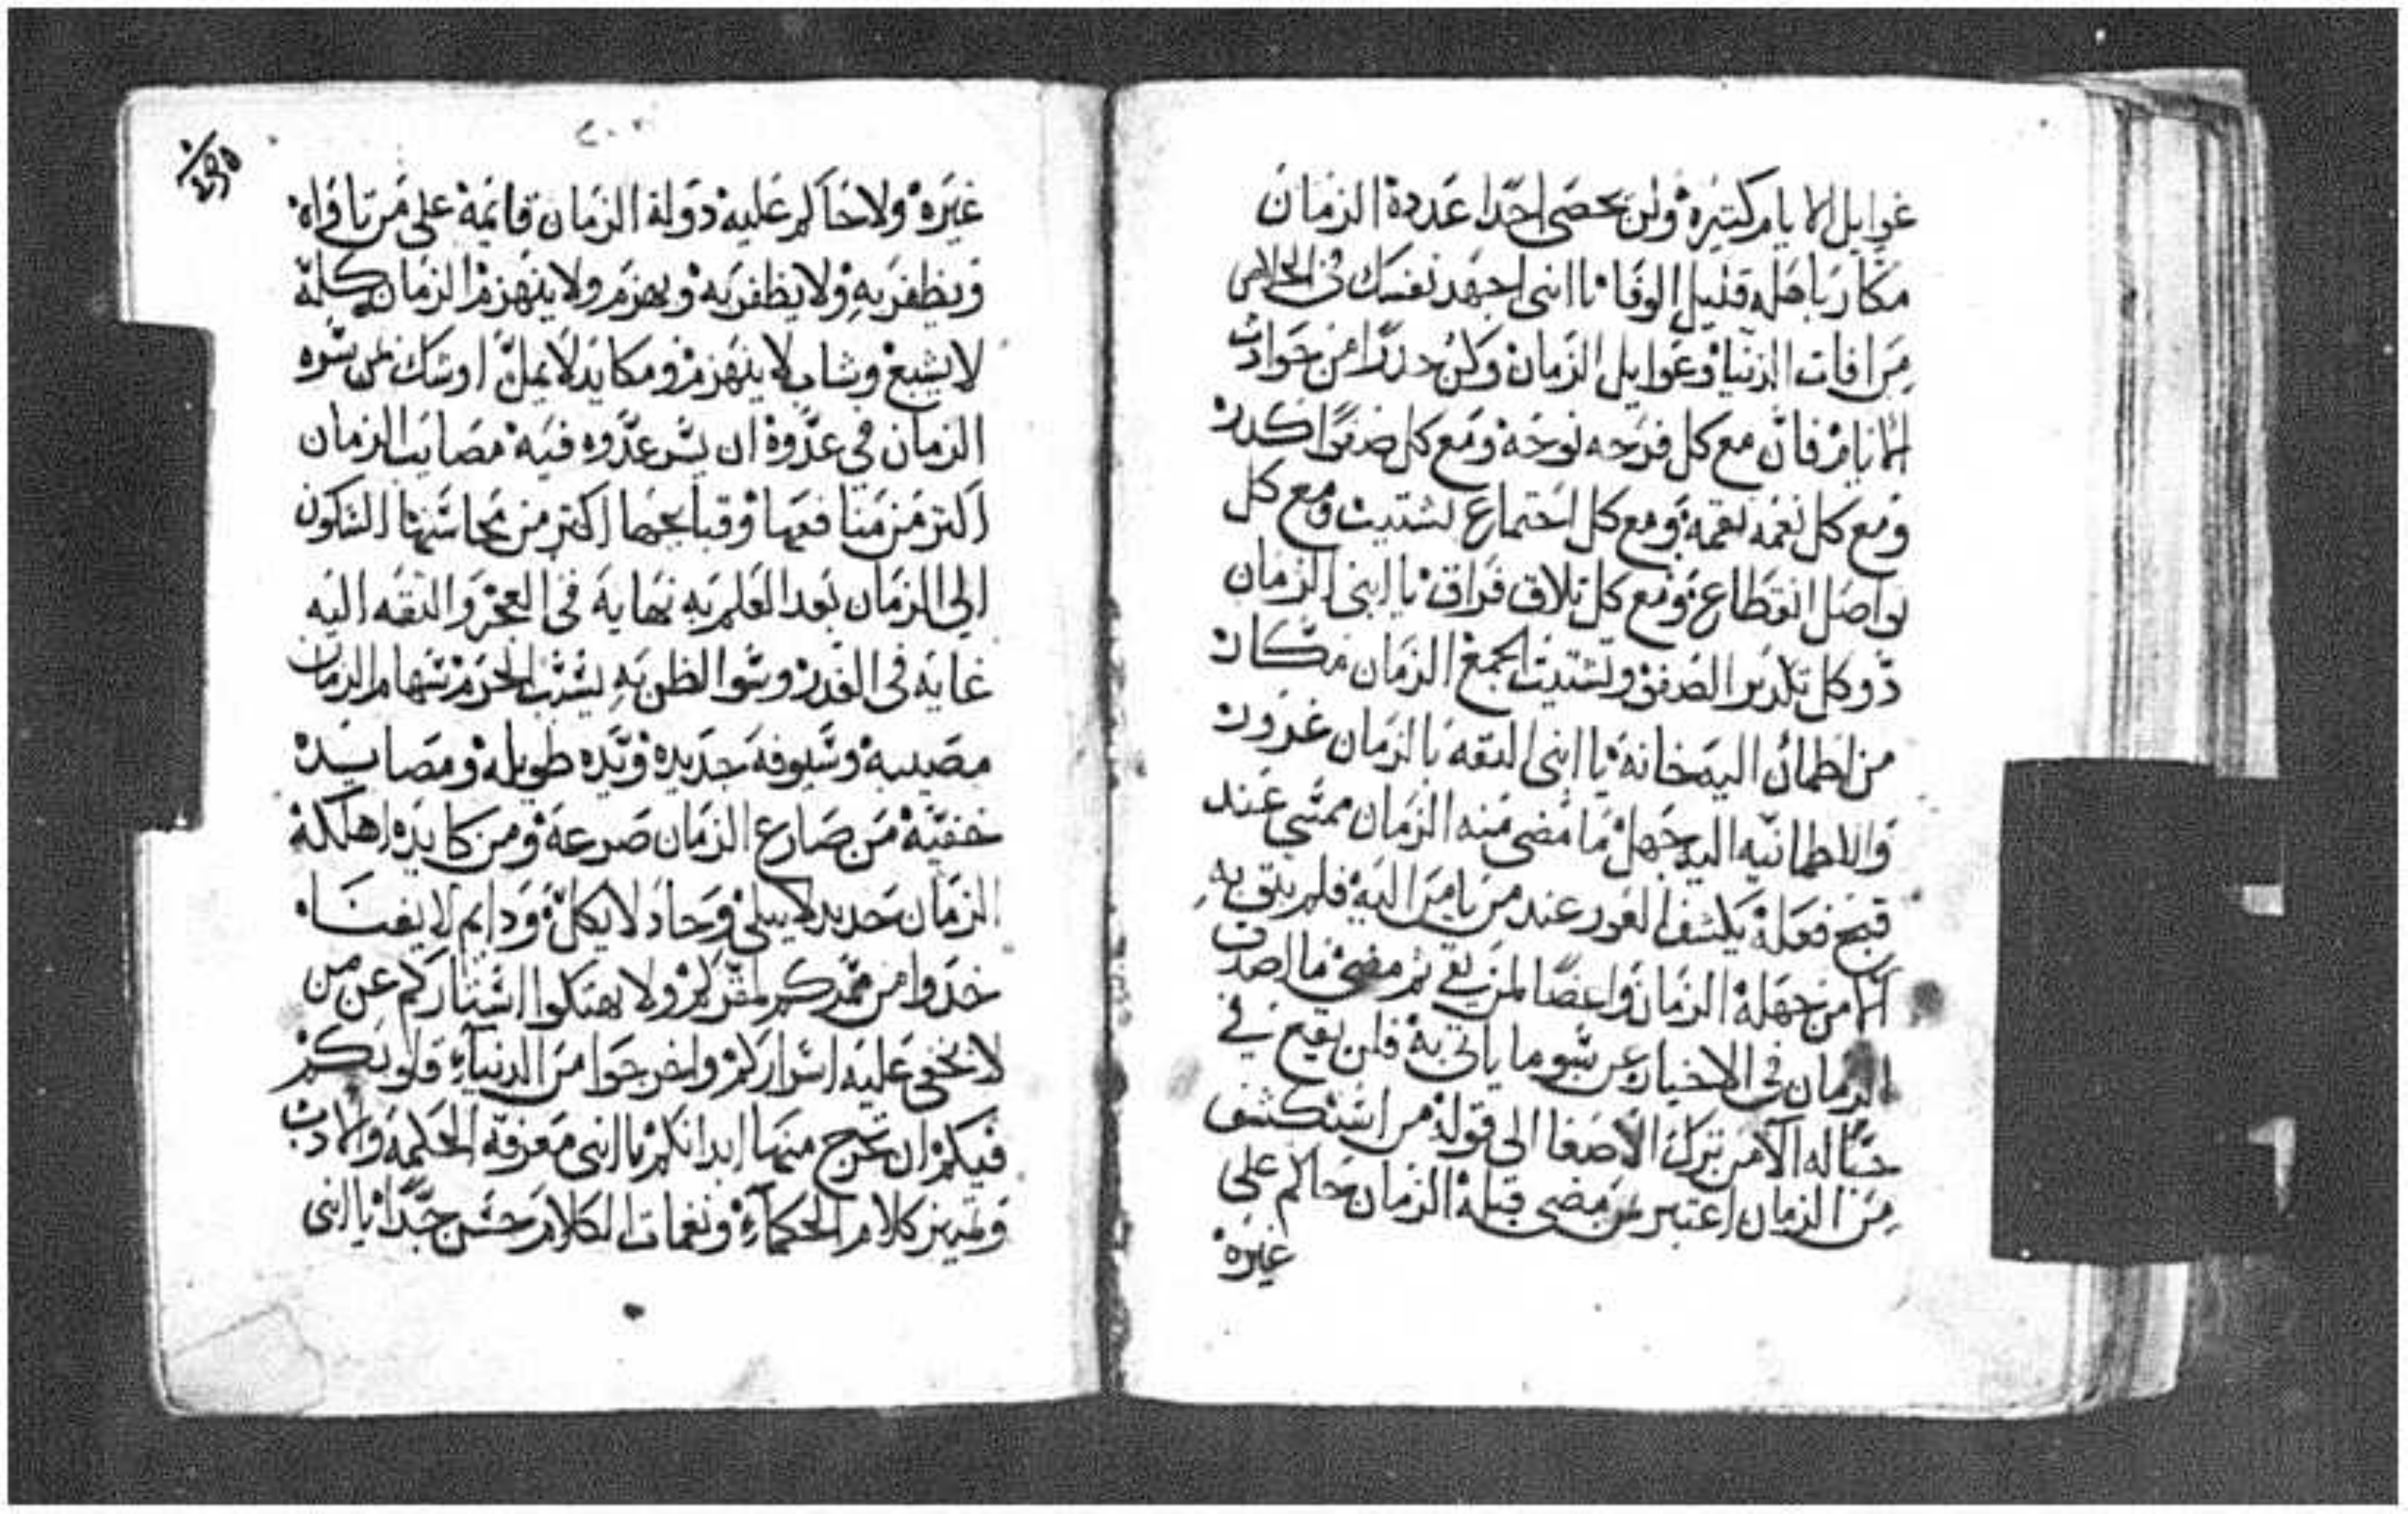 غوايل الايام كتيره ولن يحصى احدا عددة الزمان
مكار باهله قليل الوفا يا ابنى اجهد نفسك فى الخلاص
من افات الدنيا وغوايل الزمان وكن حدرًا من حوادث
الايام فان مع كل فرحه نوحة ومع كل صفوًا كدر
ومع كل نعمه نقمة ومع كل اجتماع تشتيت ومع كل
تواصل انقطاع ومع كل تلاق فراق يا ابنى الزمان
دو كل تكدير الصفو وتشتيت الجمع الزمان مكار
من اطمأن اليه خانة يا ابنى التقه بالزمان غرور
والاطمانيه اليه جهل ما مضى منه الزمان ممشي عند
قبح فعلة يكشف الغدر عند من يامن اليه فلم يتق به
الا من جهلة الزمان واعضًا لمن بقي ثم مضى ما اصدق
الزمان فى الاخبار عن شو ما ياتى به فلن يقع في
حباله الا من ترك الاصغا الى قولة من استكشف
من الزمان اعتبر من مضى قبلة الزمان حاكم على
غيره
٢٠٢
غيره ولا حاكم عليه دولة الزمان قايمة على من ناواه
ويظفر به ولا يظفر به ويهزم ولا ينهزم الزمان كلة
لا يشبع وشاب لا ينهزم ومكايد لا يمل اوشك لمن سره
الزمان في عدوة ان يسر عدوه فيه مصايب الزمان
اكتر من منافعها وقبايحها اكتر من محاسنها السكون
الى الزمان بعد العلم به نهاية فى العجز والتقه اليه
غايه فى الغدر وسوا الظن به يسبب الحزم سهام الزمان
مصيبة وسيوفه حديده ويده طويله ومصايده
خفية من صارع الزمان صرعة ومن كايده اهلكة
الزمان حديد لا يبلى وحاد لا يكل ودايم لا يفنا
خدوا من ممركم لمقركم ولا تهتكوا استاركم عن من
لا تخفى عليه اسراركم واخرجوا من الدنيا قلوبكم
قبلكم ان تخرج منها ابدانكم يا ابنى معرفة الحكمه والادب
وتميز كلام الحكمآء ونغمات الكلام حسن جدًا يا ابنى